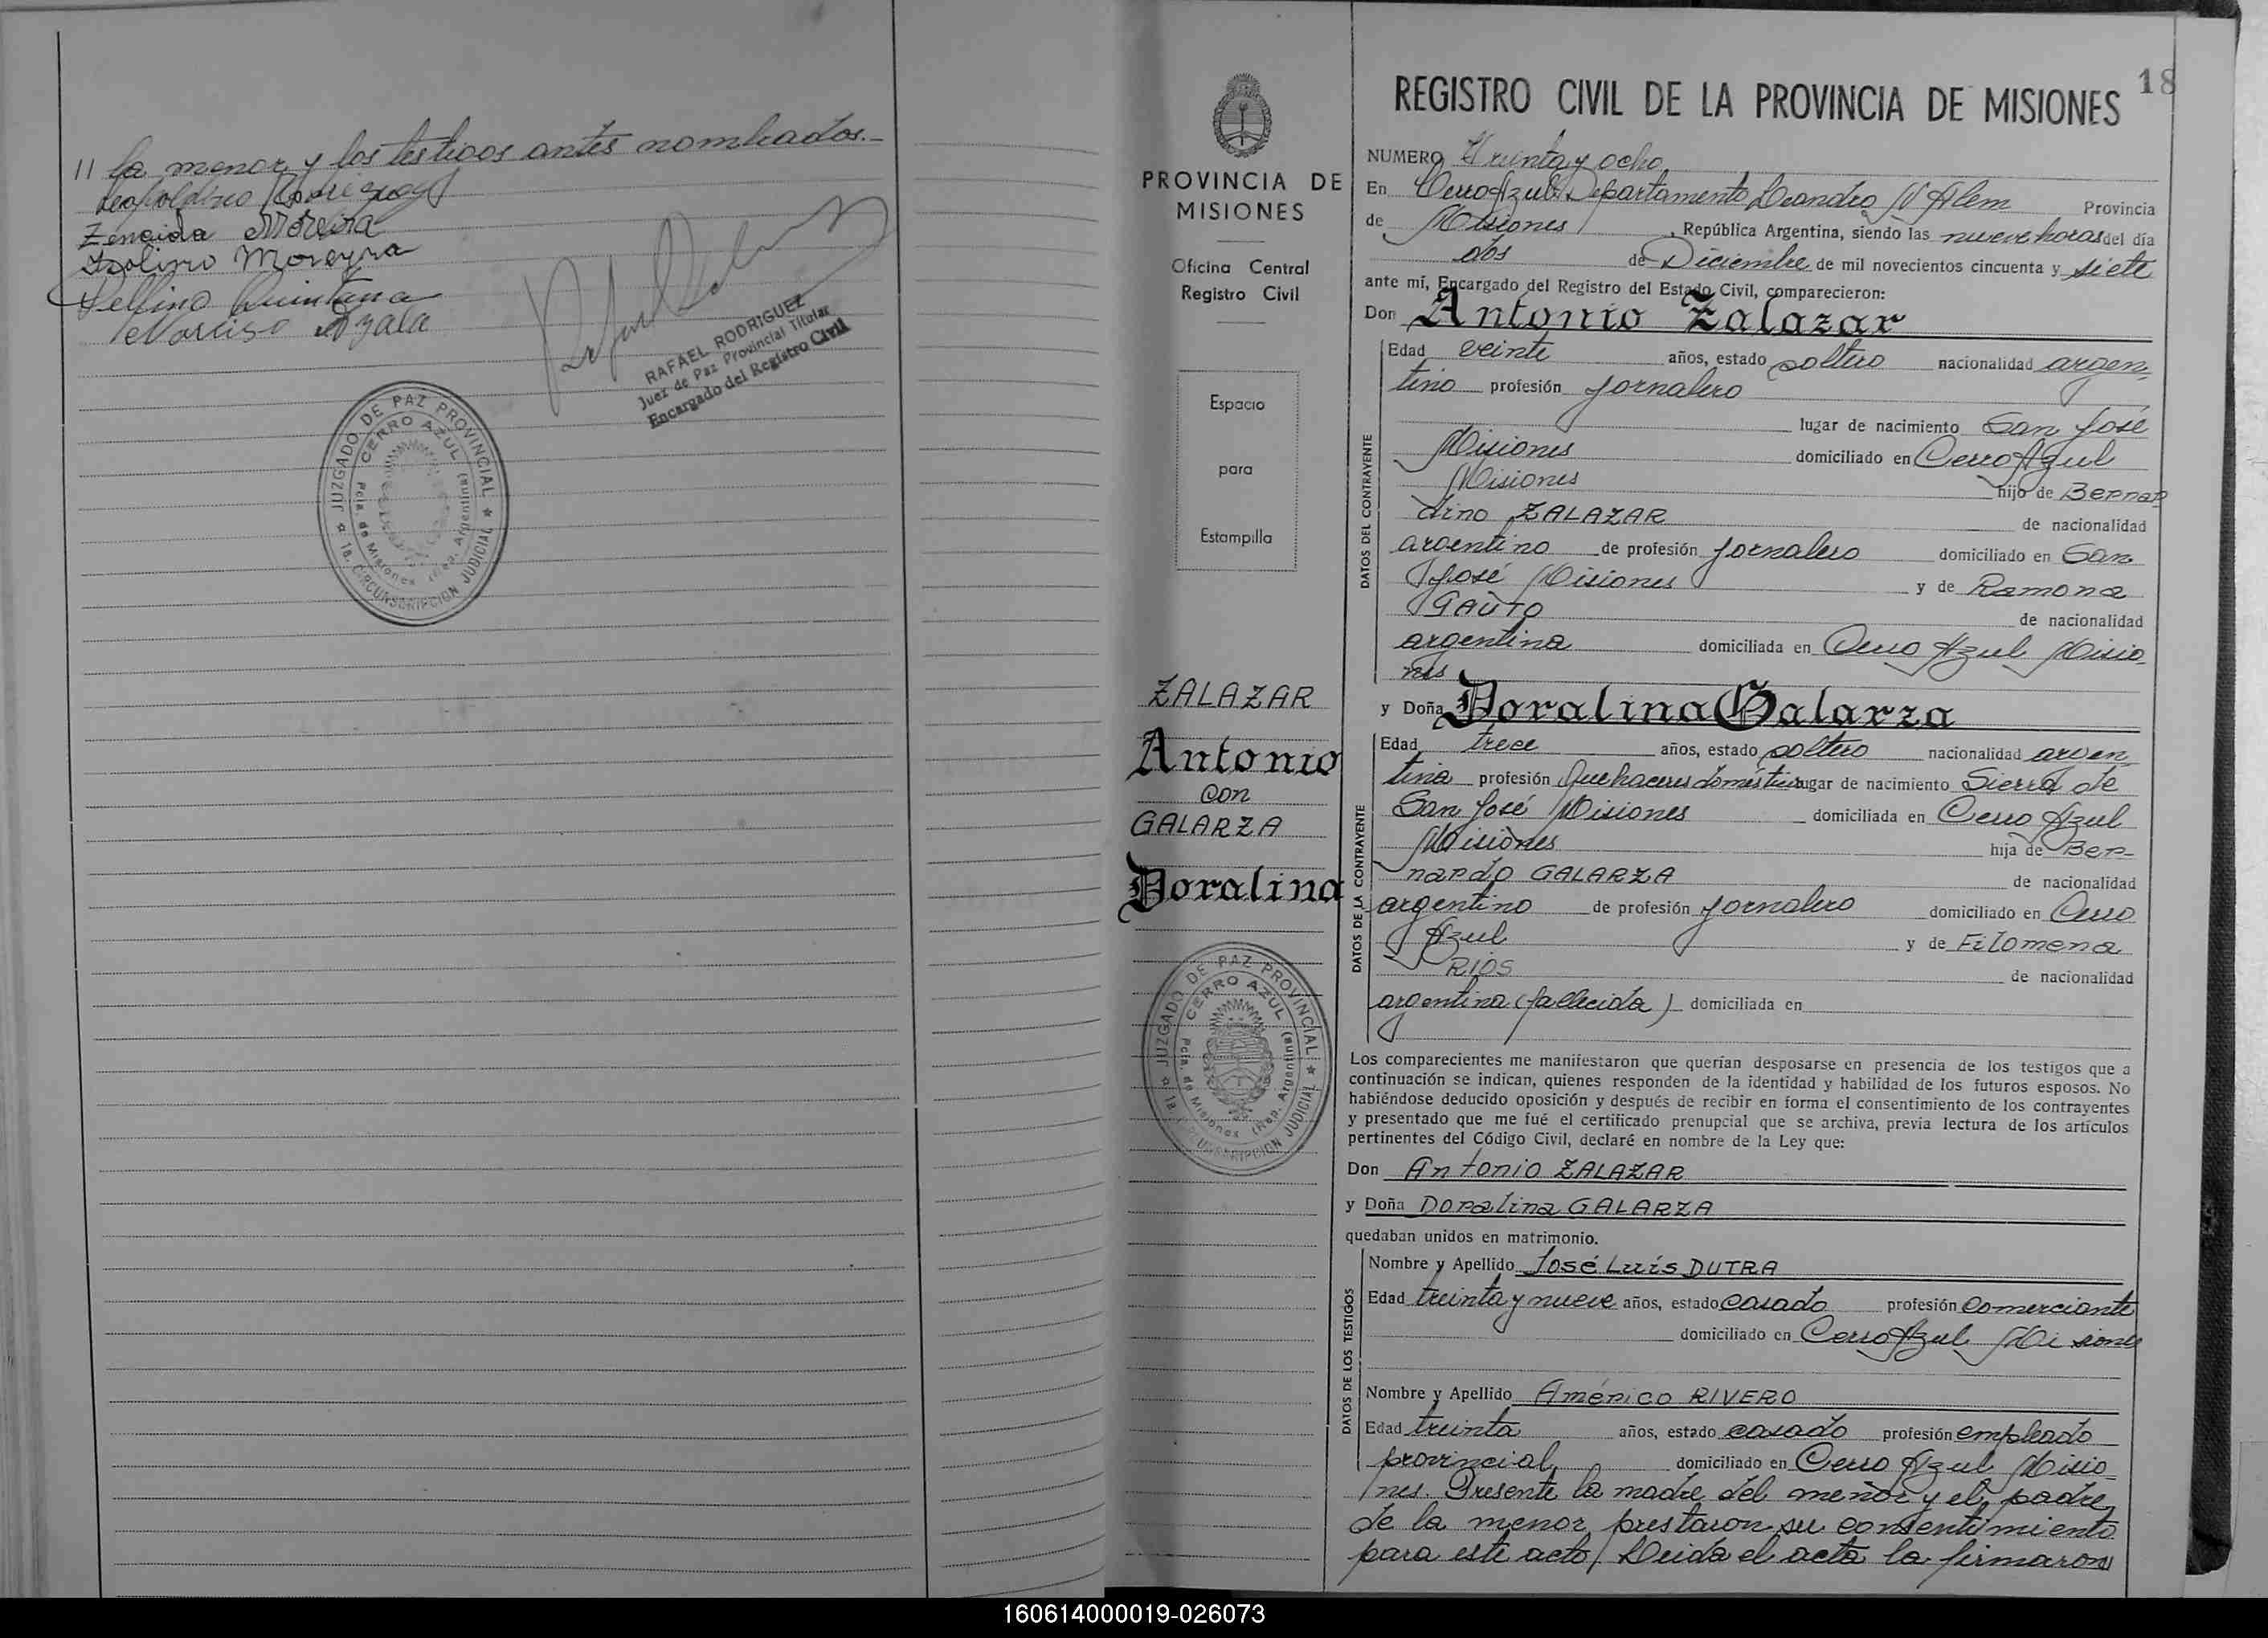 // la menor y los testigos antes nombrados.-
Leopoldino Rodriguez
Zenaida Moreira
Isolino Moreyra
Delfino Quintana
Narciso Ayala
RAFAEL RODRIGUEZ
Juez de Paz Provincial Titular
Encargado del Registro Civil
JUZGADO DE PAZ PROVINCIAL
CERRO AZUL
Pcia. de Misiones (Rep. Argentina)
1a. CIRCUNSCRIPCION JUDICIAL
PROVINCIA DE
MISIONES
Oficina Central
Registro Civil
Espacio
para
Estampilla
ZALAZAR
Antonio
con
GALARZA
Doralina
JUZGADO DE PAZ PROVINCIAL
CERRO AZUL
Pcia. de Misiones (Rep. Argentina)
1a. CIRCUNSCRIPCION JUDICIAL
18
REGISTRO CIVIL DE LA PROVINCIA DE MISIONES
NUMERO Treinta y ocho
En Cerro Azul Departamento Leandro N Alem Provincia
de Misiones, República Argentina, siendo las nueve horas del día
dos de Diciembre de mil novecientos cincuenta y siete
ante mí, Encargado del Registro del Estado Civil, comparecieron:
Don Antonio Zalazar
DATOS DEL CONTRAYENTE
Edad veinte años, estado soltero nacionalidad argen-
tino profesión jornalero
lugar de nacimiento San José
Misiones domiciliado en Cerro Azul
Misiones hijo de Bernar
dino ZALAZAR de nacionalidad
argentino de profesión jornalero domiciliado en San
José Misiones y de Ramona
GAUTO de nacionalidad
argentina domiciliada en Cerro Azul Misio
nes
y Doña Doralina Galarza
DATOS DE LA CONTRAYENTE
Edad trece años, estado soltero nacionalidad argen
tina profesión Quehaceres domésticos lugar de nacimiento Sierra de
San José Misiones domiciliada en Cerro Azul
Misiones hija de Ber-
nardo GALARZA de nacionalidad
argentino de profesión jornalero domiciliado en Cerro
Azul y de Filomena
RIOS de nacionalidad
argentina (fallecida) domiciliada en
Los comparecientes me manifestaron que querían desposarse en presencia de los testigos que a
continuación se indican, quienes responden de la identidad y habilidad de los futuros esposos. No
habiéndose deducido oposición y después de recibir en forma el consentimiento de los contrayentes
y presentado que me fué el certificado prenupcial que se archiva, previa lectura de los artículos
pertinentes del Código Civil, declaré en nombre de la Ley que:
Don Antonio ZALAZAR
y Doña Doralina GALARZA
quedaban unidos en matrimonio.
DATOS DE LOS TESTIGOS
Nombre y Apellido José Luis DUTRA
Edad treinta y nueve años, estado casado profesión comerciante
domiciliado en Cerro Azul Misiones
Nombre y Apellido Américo RIVERO
Edad treinta años, estado casado profesión empleado
provincial domiciliado en Cerro Azul Misio-
nes. Presente la madre del menor y el padre
de la menor prestaron su consentimiento
para este acto/ Leida el acta la firmaron
160614000019-026073